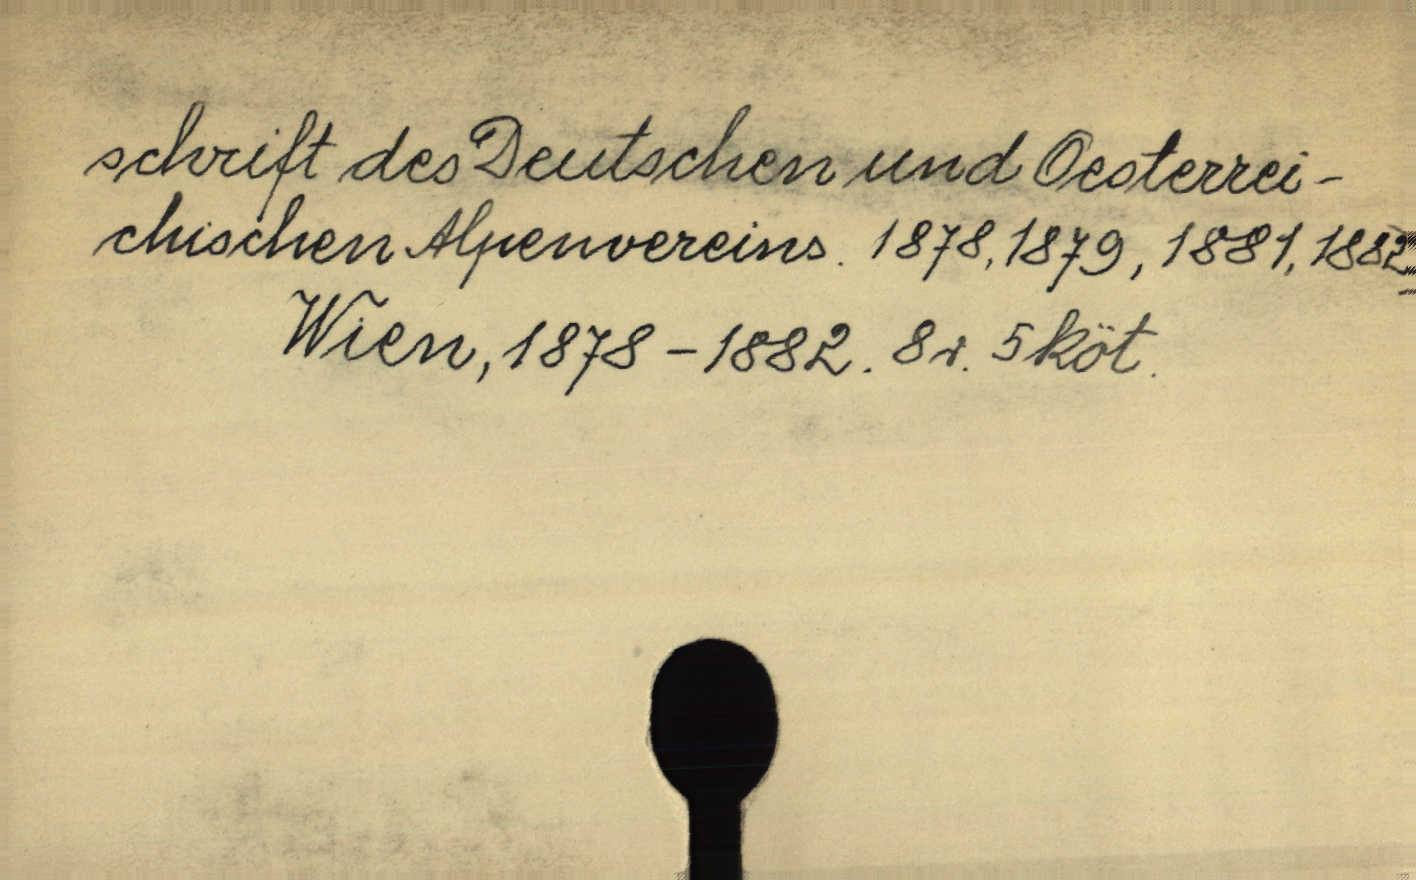 schrift des Deutschen und Oesterrei-
chischen Alpenvereins. 1878, 1879, 1881, 1882
Wien, 1878-1882. 8r. 5 köt.